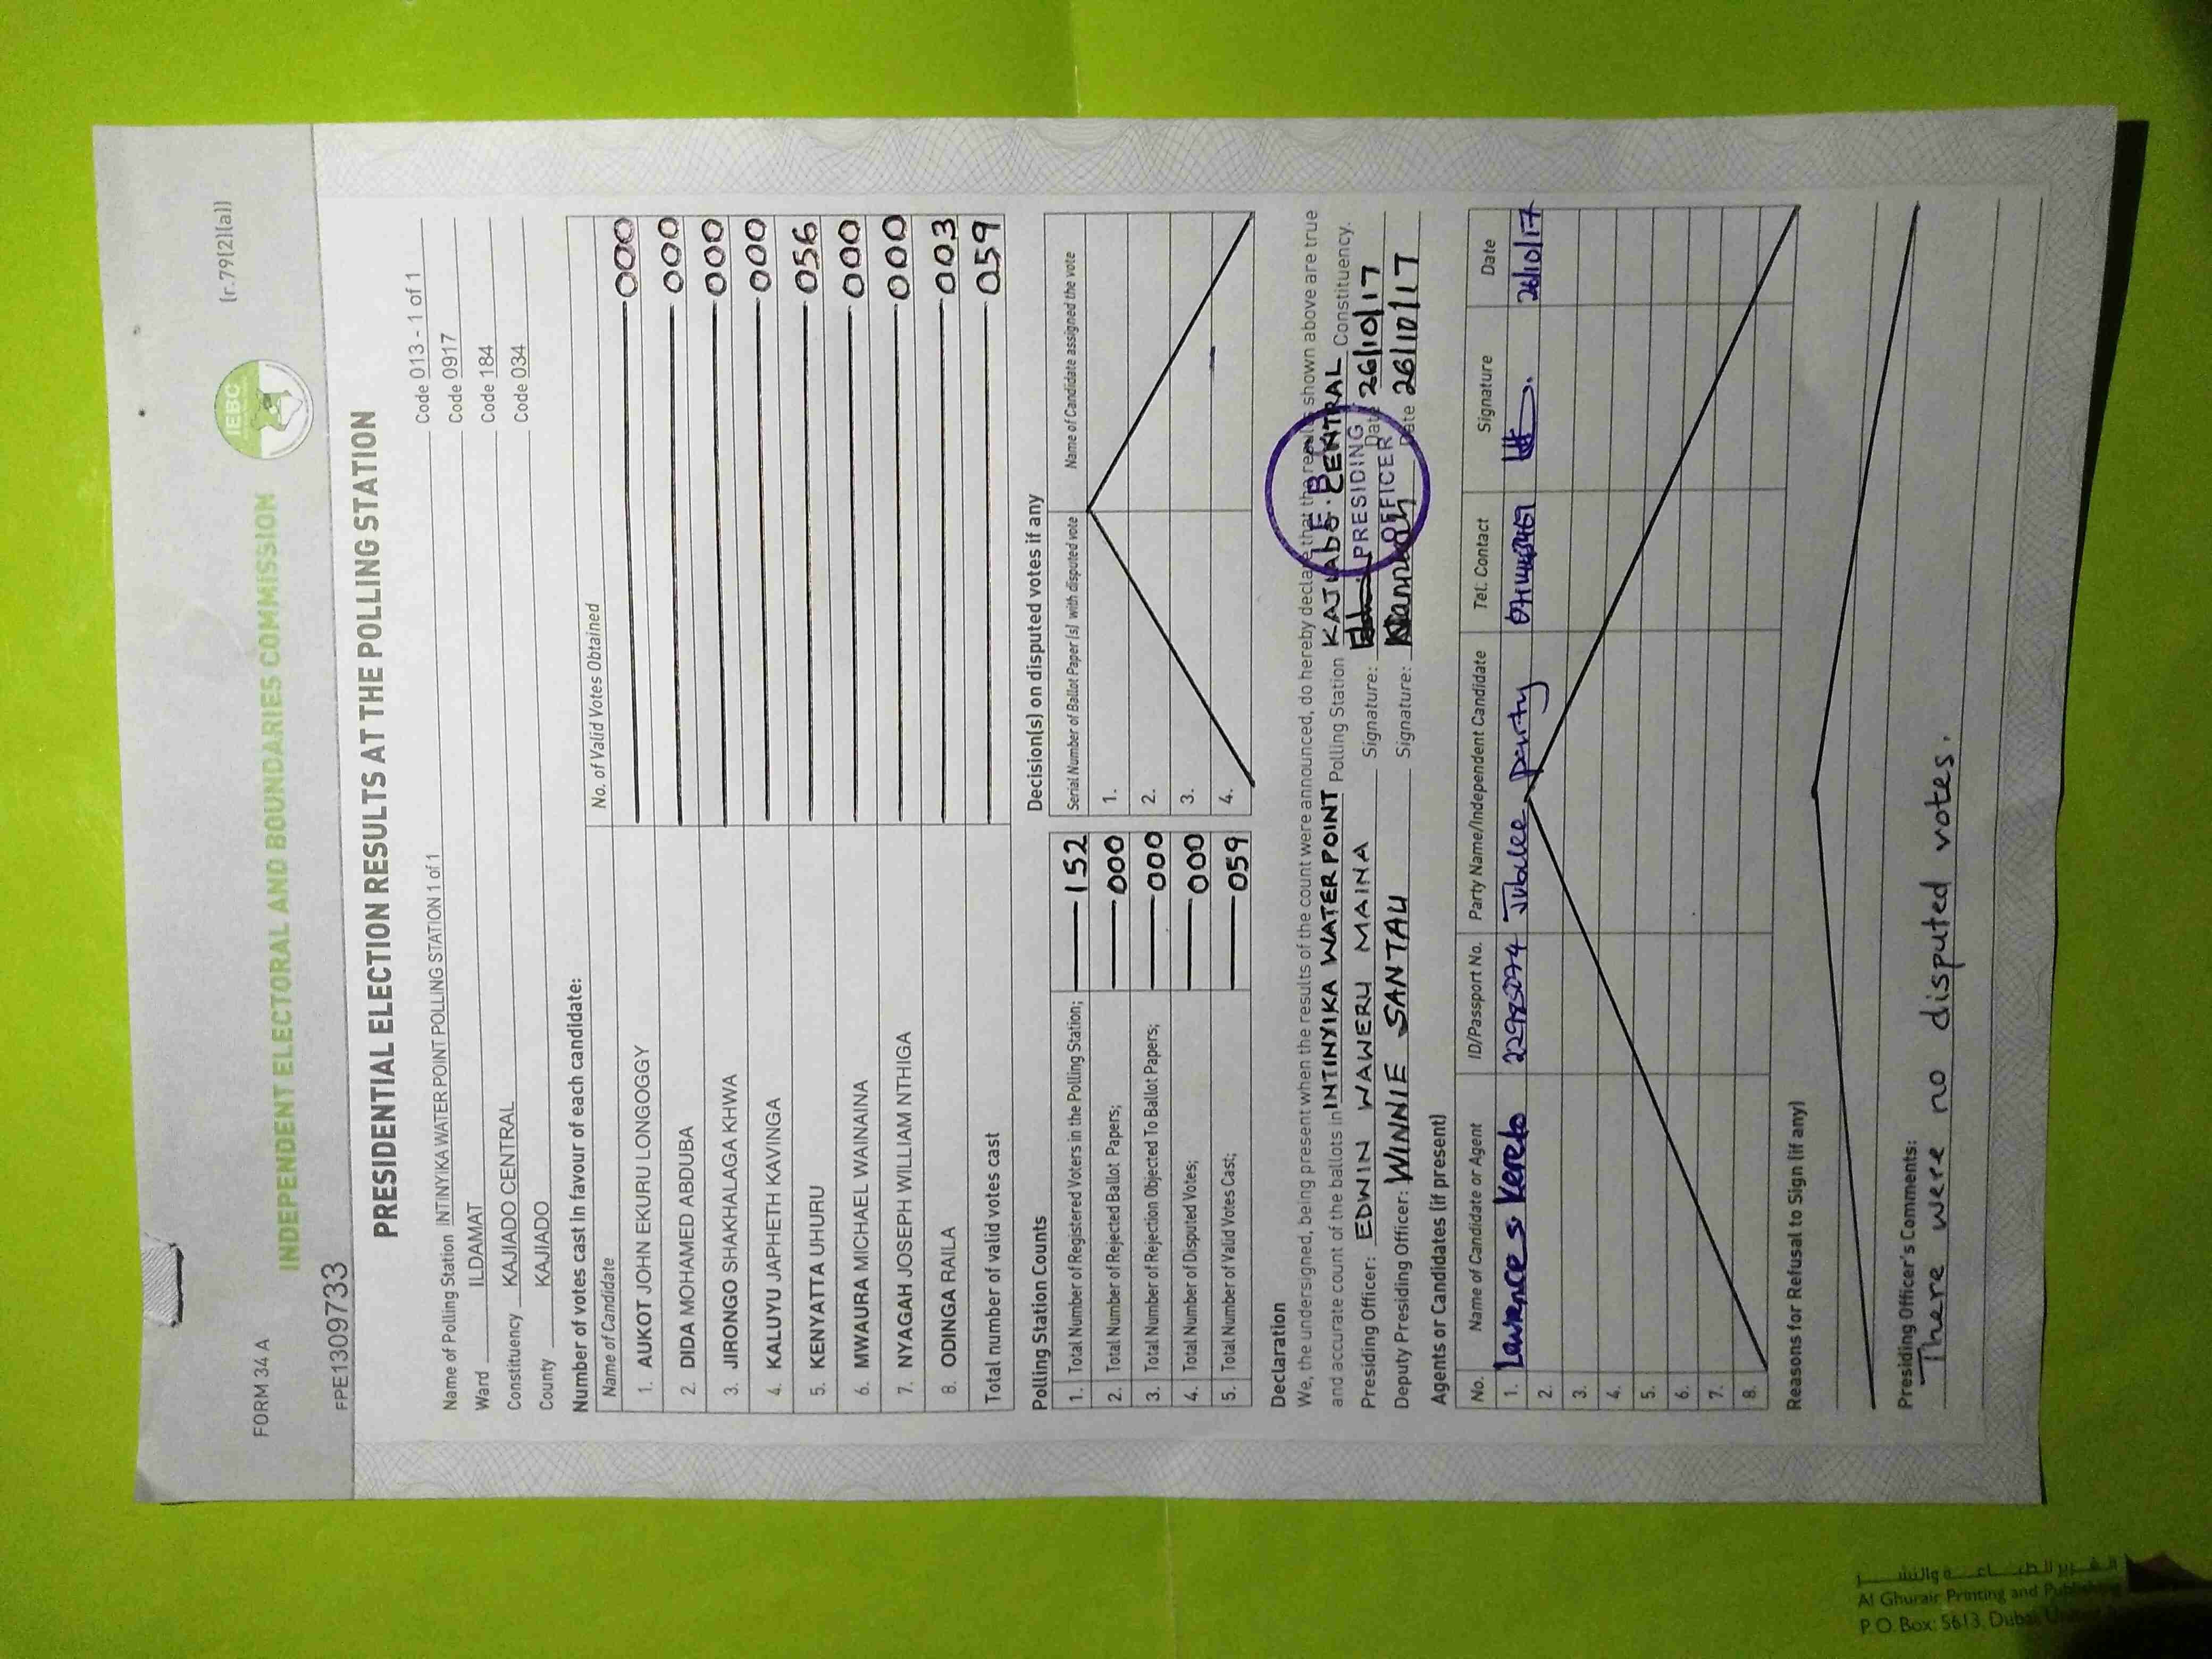 FORM 34 A
(r.79(2)(a))
IEBC
INDEPENDENT ELECTORAL AND BOUNDARIES COMMISSION
FPE1309733
PRESIDENTIAL ELECTION RESULTS AT THE POLLING STATION
Name of Polling Station INTINYIKA WATER POINT POLLING STATION 1 of 1 Code 013 - 1 of 1
Ward ILDAMAT Code 0917
Constituency KAJIADO CENTRAL Code 184
County KAJIADO Code 034
Number of votes cast in favour of each candidate:
Name of Candidate No. of Valid Votes Obtained
1. AUKOT JOHN EKURU LONGOGGY 000
2. DIDA MOHAMED ABDUBA 000
3. JIRONGO SHAKHALAGA KHWA 000
4. KALUYU JAPHETH KAVINGA 000
5. KENYATTA UHURU 056
6. MWAURA MICHAEL WAINAINA 000
7. NYAGAH JOSEPH WILLIAM NTHIGA 000
8. ODINGA RAILA 003
Total number of valid votes cast 059
Polling Station Counts
1. Total Number of Registered Voters in the Polling Station; 152
2. Total Number of Rejected Ballot Papers; 000
3. Total Number of Rejection Objected To Ballot Papers; 000
4. Total Number of Disputed Votes; 000
5. Total Number of Valid Votes Cast; 059
Decision(s) on disputed votes if any
Serial Number of Ballot Paper (s) with disputed vote Name of Candidate assigned the vote
1.
2.
3.
4.
Declaration
We, the undersigned, being present when the results of the count were announced, do hereby declare that the results shown above are true
and accurate count of the ballots in INTINYIKA WATER POINT Polling Station KAJIADO CENTRAL Constituency.
Presiding Officer: EDWIN WAWERU MAINA Signature: Date 26/10/17
Deputy Presiding Officer: WINNIE SANTAU Signature: Date 26/10/17
PRESIDING
OFFICER
Agents or Candidates (if present)
No. Name of Candidate or Agent ID/Passport No. Party Name/Independent Candidate Tel: Contact Signature Date
1. Lawrence s. Kereto Jubilee party 26/10/17
2.
3.
4.
5.
6.
7.
8.
Reasons for Refusal to Sign (if any)
Presiding Officer's Comments:
There were no disputed votes.
Al Ghurair Printing and Publishing
P.O. Box: 5613, Dubai,